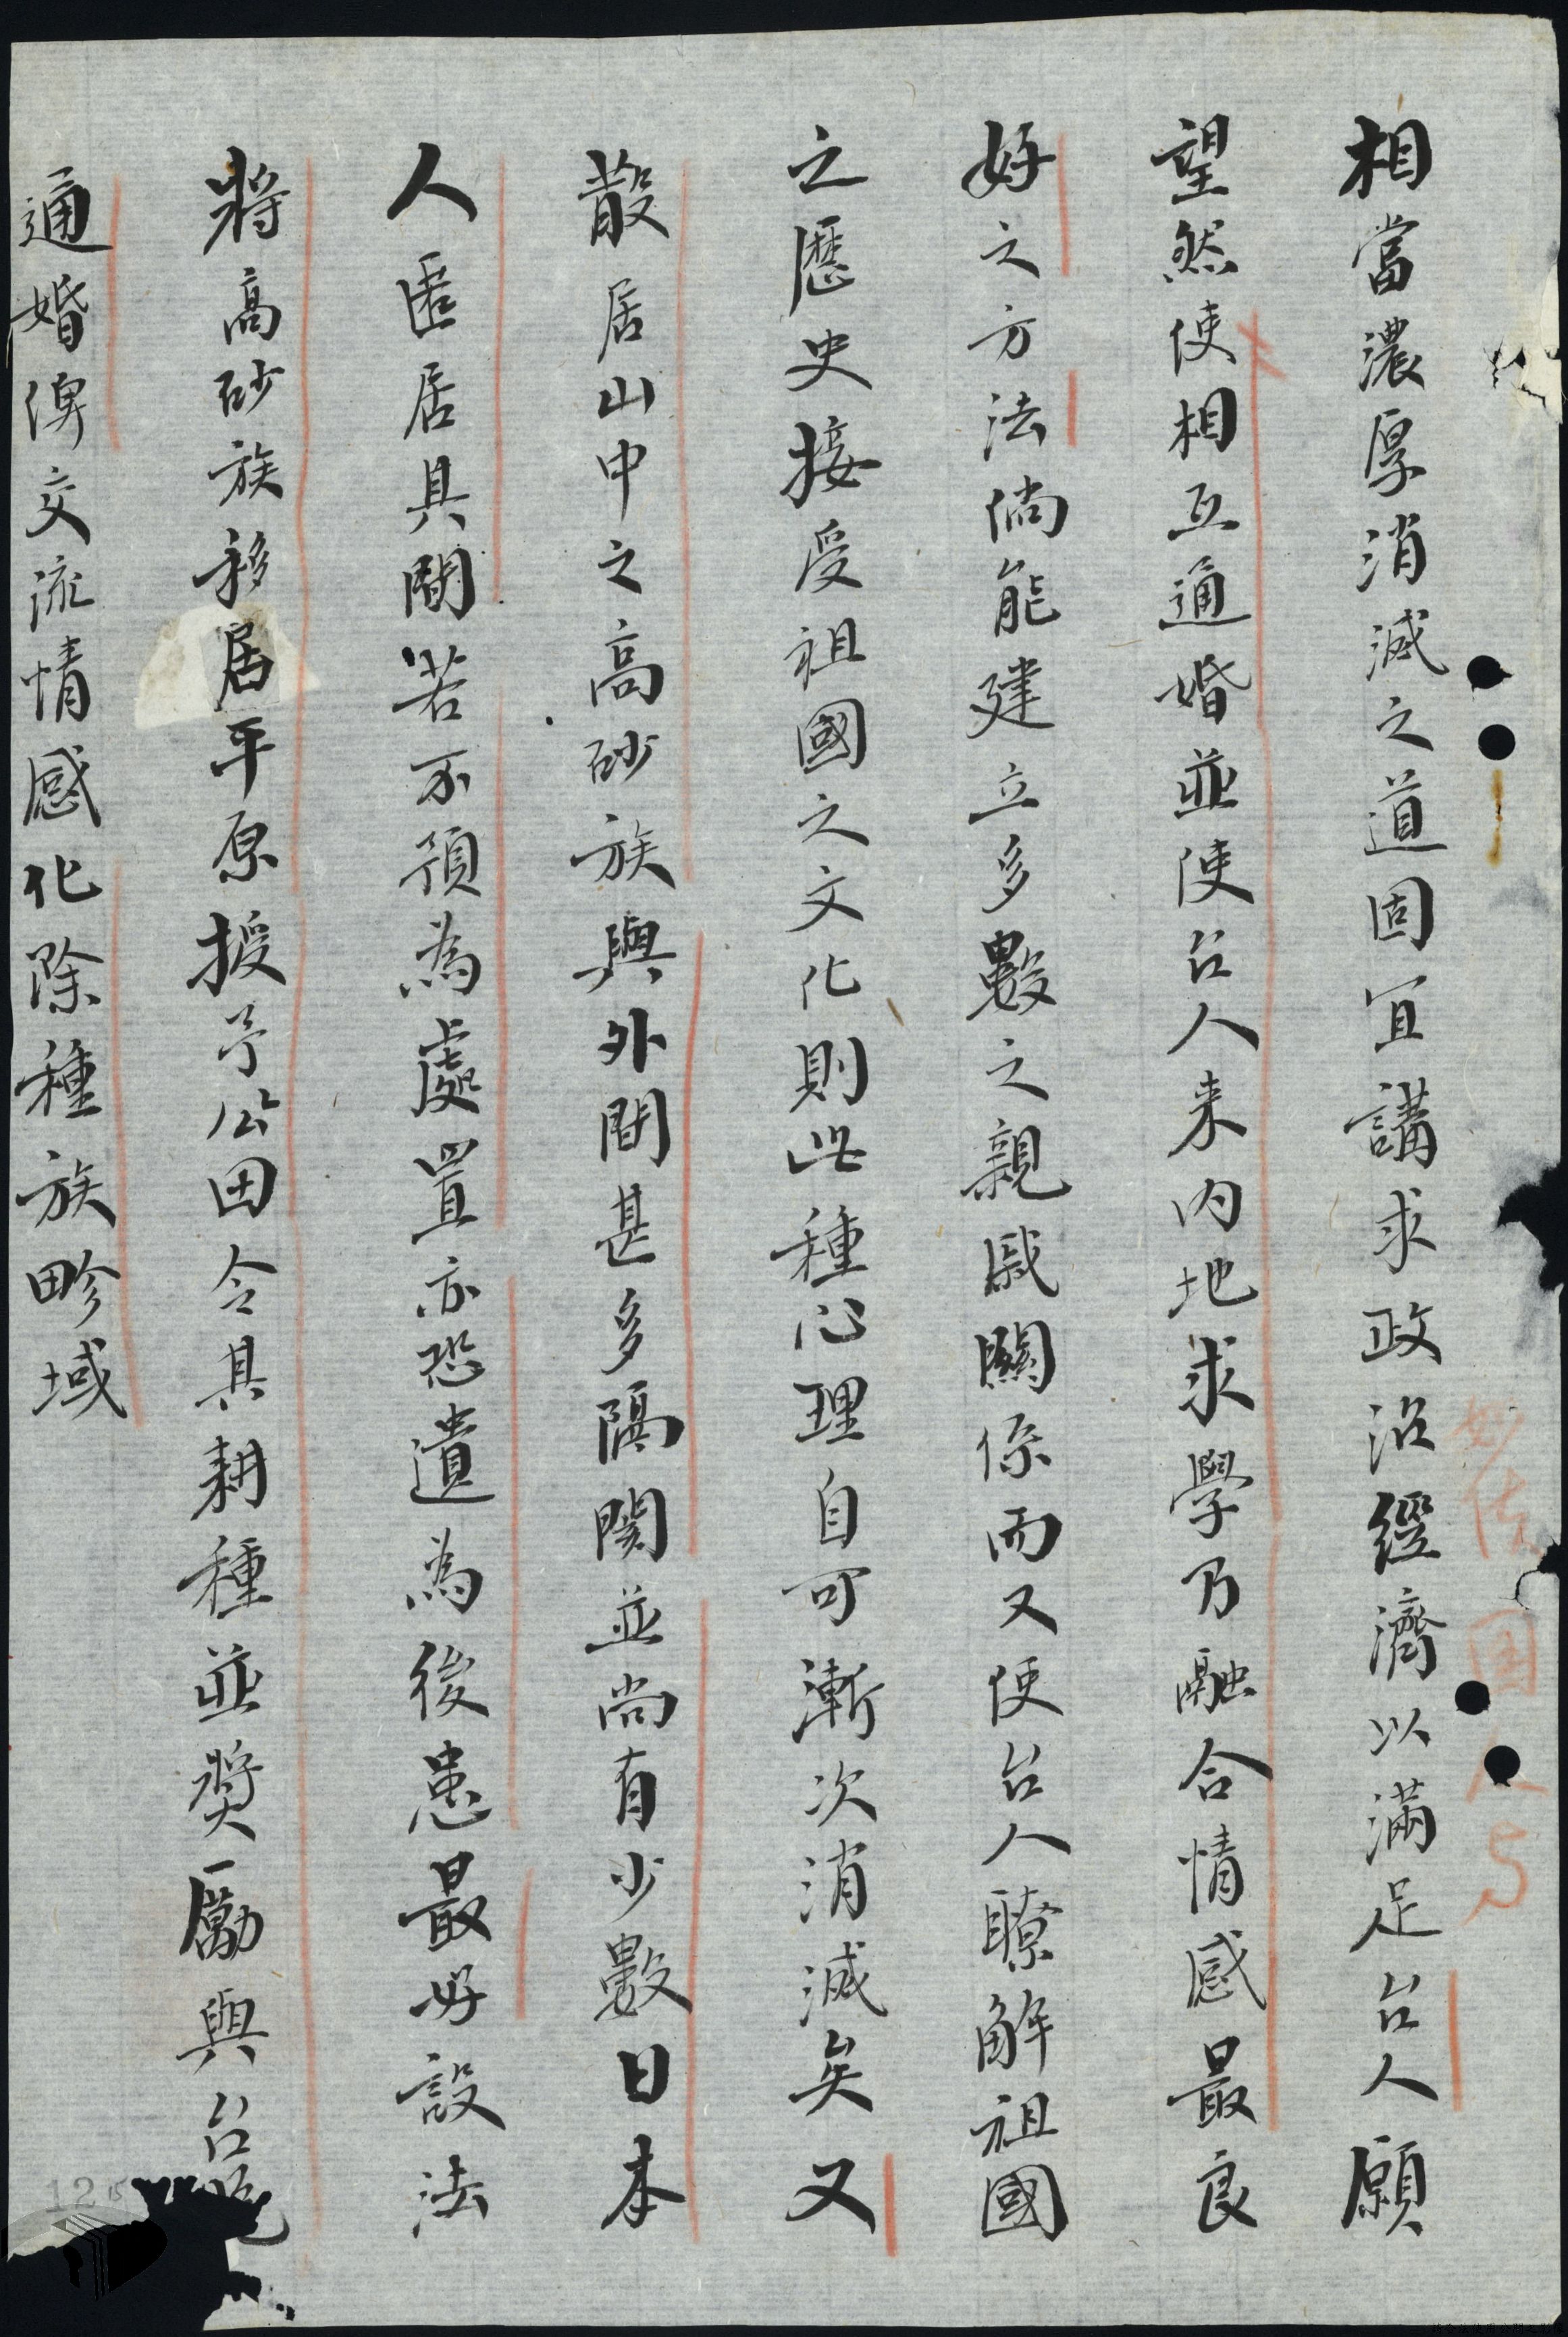 相當濃厚消滅之道固宜講求政治經濟以滿足台人願
望然使相互通婚並使台人来内地求學乃融合情感最良
好之方法倘能建立多數之親戚關係而又使台人瞭解祖國
之歷史接受祖國之文化則此種心理自可漸次消滅矣又
散居山中之高砂族與外間甚多隔閡並尚有少數日本
人匿居其間若不預為處置亦恐遺為後患最好設法
將高砂族移居平原授予公田令其耕種並獎勵與台
通婚俾交流情感化除種族畛域
125